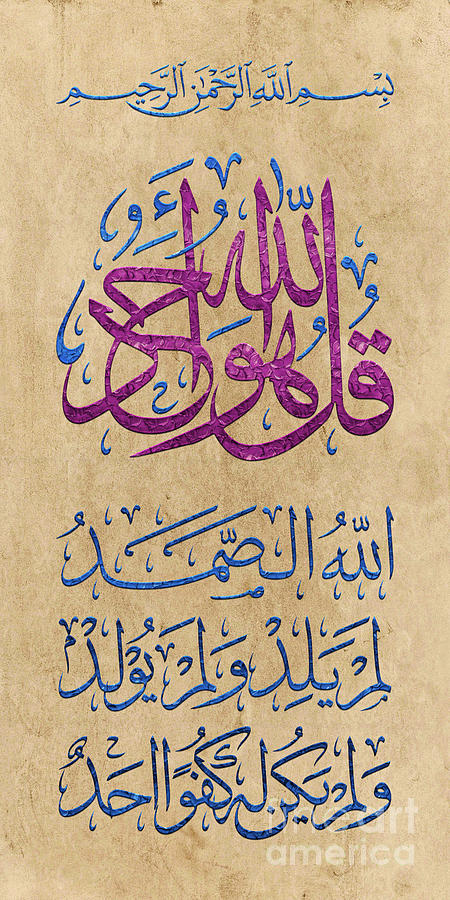 بِسْمِ ٱللَّهِ ٱلرَّحْمَٰنِ ٱلرَّحِيمِ
قُلْ هُوَ اللَّهُ أَحَدٌ
اللَّهُ الصَّمَدُ
لَمْ يَلِدْ وَلَمْ يُولَدْ
وَلَمْ يَكُنْ لَهُ كُفُوًا أَحَدٌ
fine art
america